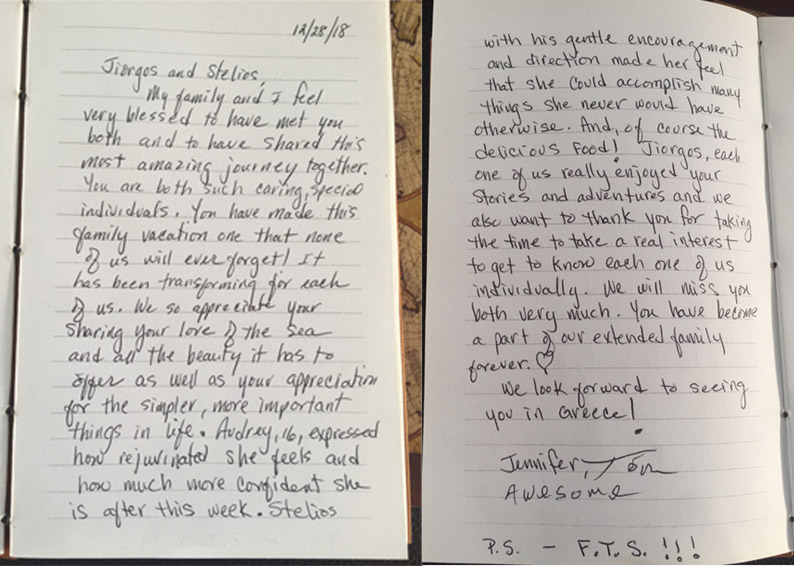 12/28/18
Jiorgos and Stelios,
My family and I feel
very blessed to have met you
both and to have shared this
most amazing journey together.
You are both such caring, special
individuals. You have made this
family vacation one that none
of us will ever forget! It
has been transforming for each
of us. We so appreciate your
sharing your love of the sea
and all the beauty it has to
offer as well as your appreciation
for the simpler, more important
things in life. Audrey, 16, expressed
how rejuvinated she feels and
how much more confident she
is after this week. Stelios
with his gentle encouragement
and direction made her feel
that she could accomplish many
things she never would have
otherwise. And, of course the
delicious food! Jiorgos, each
one of us really enjoyed your
stories and adventures and we
also want to thank you for taking
the time to take a real interest
to get to know each one of us
individually. We will miss you
both very much. You have become
a part of our extended family
forever. ♡
We look forward to seeing
you in Greece!
Jennifer, Tom
Awesome
P.S. - F.T.S. !!!